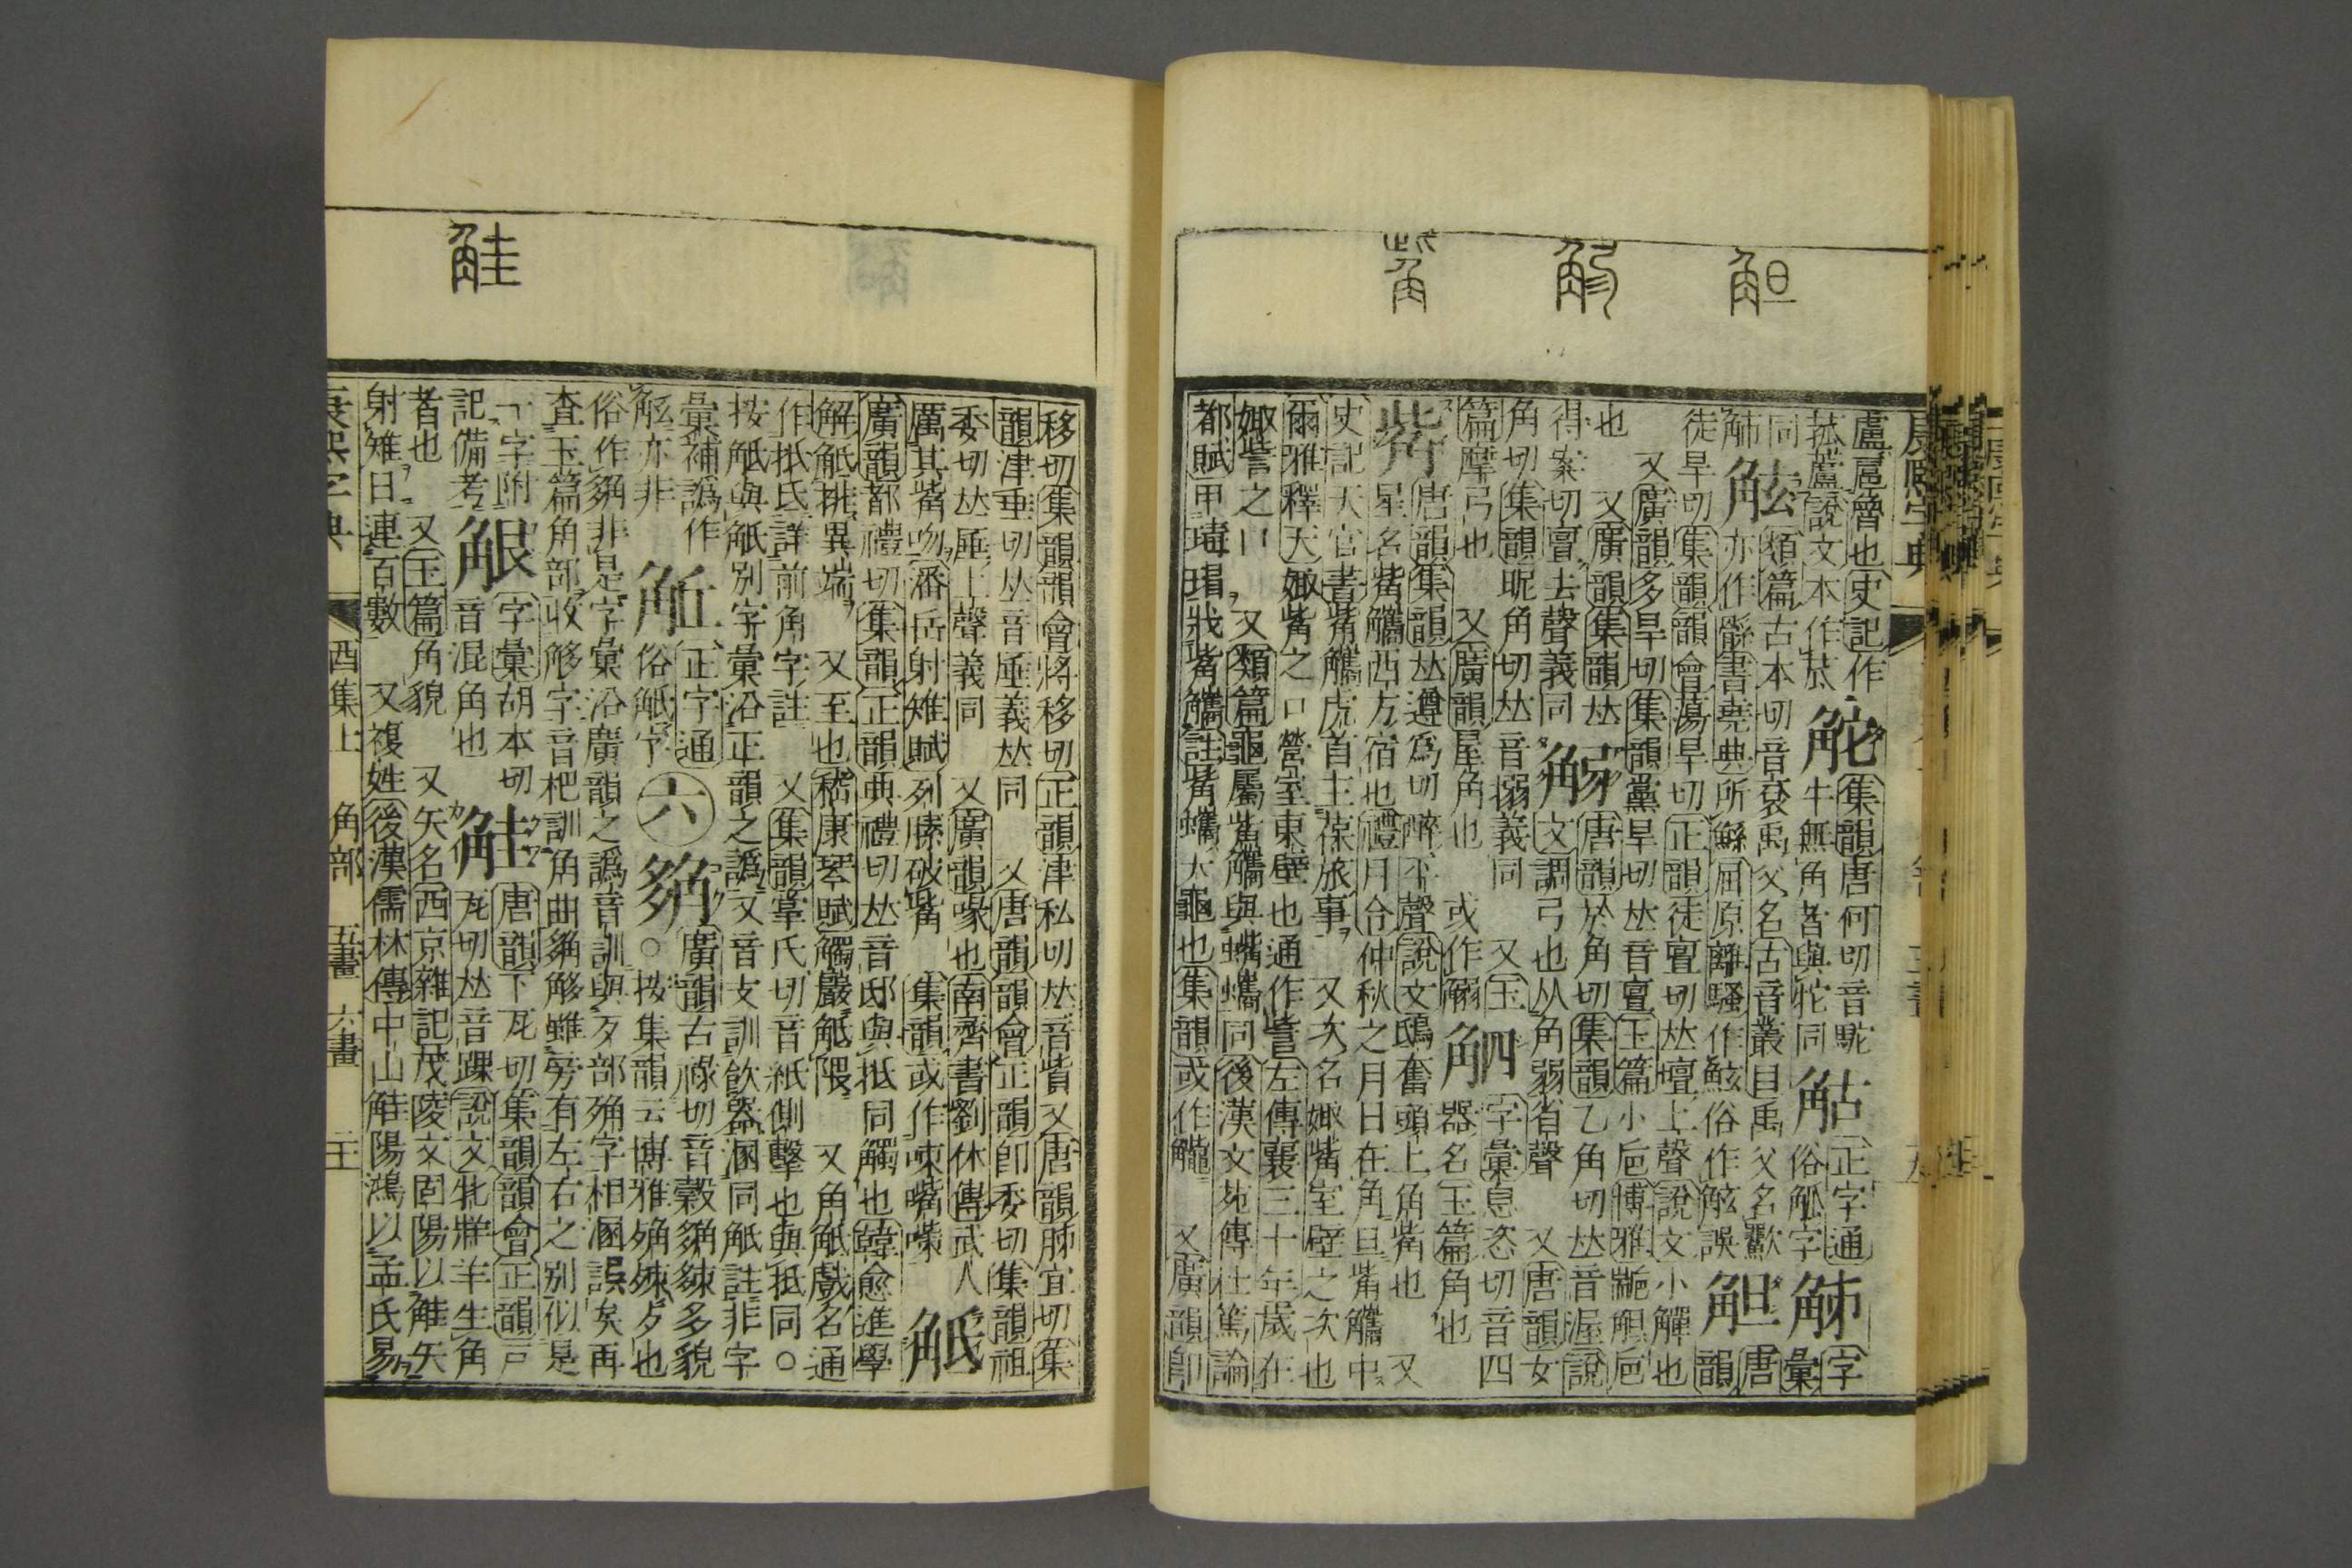 觛 䚥 觜
盧扈魯也史記作
菰蘆說文本作苽
觤
集韻唐何切音駝
牛無角者與牠同
正字通
俗觚字
字彙
同
類篇古本切音袞禹父名古音叢目禹父名
亦作
書堯典所
屈原離騷作鮌俗作
誤
觛
唐韻
徒旱切集韻韻會蕩旱切正韻徒亶切𠀤壇上聲說文小觶也
又廣韻多旱切集韻黨旱切𠀤音亶玉篇小巵博雅
觛巵
也
又廣韻集韻𠀤
得案切亶去聲義同
唐韻於角切集韻乙角切𠀤音渥說
文調弓也从角弱省聲
又唐韻女
角切集韻昵角切𠀤音搦義同
又玉
篇摩弓也
又廣韻屋角也
或作
字彙息恣切音四
器名玉篇角也
觜
唐韻集韻𠀤遵爲切醉平聲說文鴟奮頭上角觜也
又
星名觜觿西方宿也禮月令仲秋之月日在角旦觜觿中
史記天官書觜觿虎首主葆旅事
又次名娵觜室壁之次也
爾雅釋天娵觜之口營室東壁也通作訾左傳襄三十年歲在
娵訾之口
又類篇龜屬觜觿與蟕蠵同後漢文苑傳杜篤論
都賦甲瑇瑁戕觜觿註觜蠵大龜也集韻或作
又廣韻卽
鮭
移切集韻韻會將移切正韻津私切𠀤音貲又唐韻
宜切集
韻津垂切𠀤音厜義𠀤同
又唐韻韻會正韻卽委切集韻祖
委切𠀤厜上聲義同
又廣韻喙也南齊書劉休傳武人
厲其觜吻潘岳射雉賦列膆破觜
集韻或作㖩嘴
觝
廣韻都禮切集韻正韻典禮切𠀤音邸與抵同觸也韓愈進學
解觝排異端
又至也嵇康琴賦觸巖觝隈
又角觝戲名通
作抵氏詳前角字註
又集韻掌氏切音紙側擊也與抵同○
按觝與觗別字彙沿正韻之譌又音支訓飲器溷同觗註非字
彙補譌作
亦非
正字通
俗觝字
六
廣韻古祿切音穀
多貌
○按集韻云博雅
也
俗作
非是字彙沿廣韻之譌音訓與歹部
字相溷誤矣再
查玉篇角部收
字音杷訓角曲
雖旁有左右之別似是
一字附
記備考
字彙胡本切
音混角也
觟
唐韻下瓦切集韻韻會正韻戸
瓦切𠀤音踝說文牝牂羊生角
者也
又玉篇角貌
又矢名西京雜記茂陵文固陽以觟矢
射雉日連百數
又複姓後漢儒林傳中山觟陽鴻以孟氏易
康熙字典 酉集上 角部 五畫 六畫